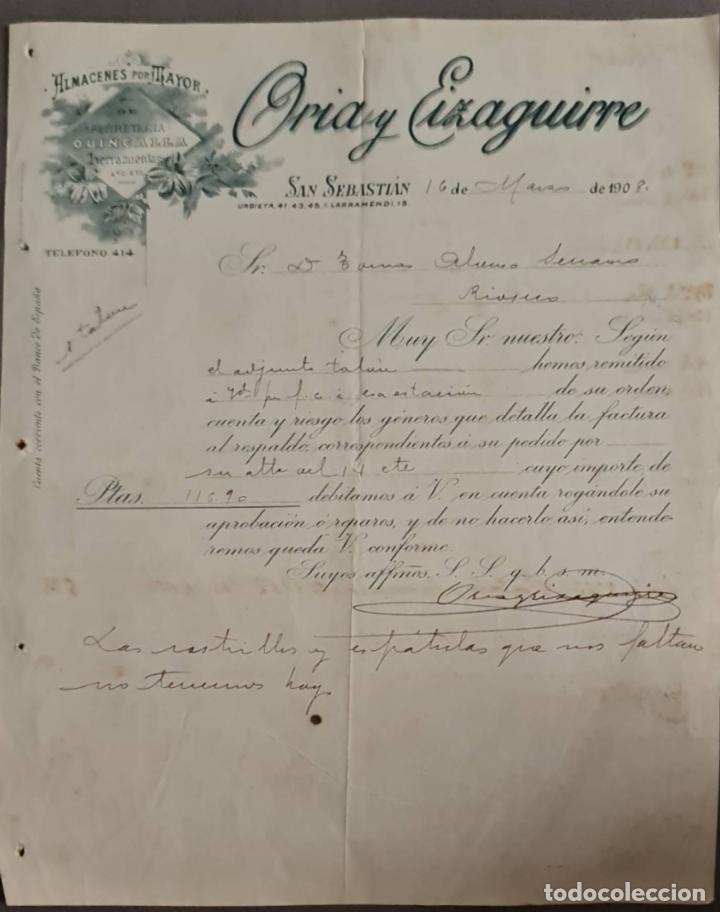 ALMACENES POR MAYOR
DE
FERRETERIA
QUINCALLA
Herramientas
ETC. ETC.
TELEFONO 414
Oria y Eizaguirre
SAN SEBASTIÁN 16 de Marzo de 1908.
URBIETA, 41 43, 45. Y LARRAMENDI, 15.
Cuenta corriente con el Banco de España
1 talon
Sr. D Tomas Alonso Serrano
Rioseco
Muy Sr. nuestro: Según
el adjunto talón hemos remitido
á Vd. por f. c. á esa estación de su orden,
cuenta y riesgo los géneros que detalla la factura
al respaldo, correspondientes á su pedido por
su atta del 14 cte cuyo importe de
Ptas. 116.90 debitamos á V. en cuenta rogándole su
aprobación ó reparos, y de no hacerlo así, entende-
remos queda V. conforme.
Suyos affmos. S. S. q. b. s. m.
Oria y Eizaguirre
Los rastrillos y espátulas que nos faltan
no tenemos hoy
todocoleccion
todocoleccion.net